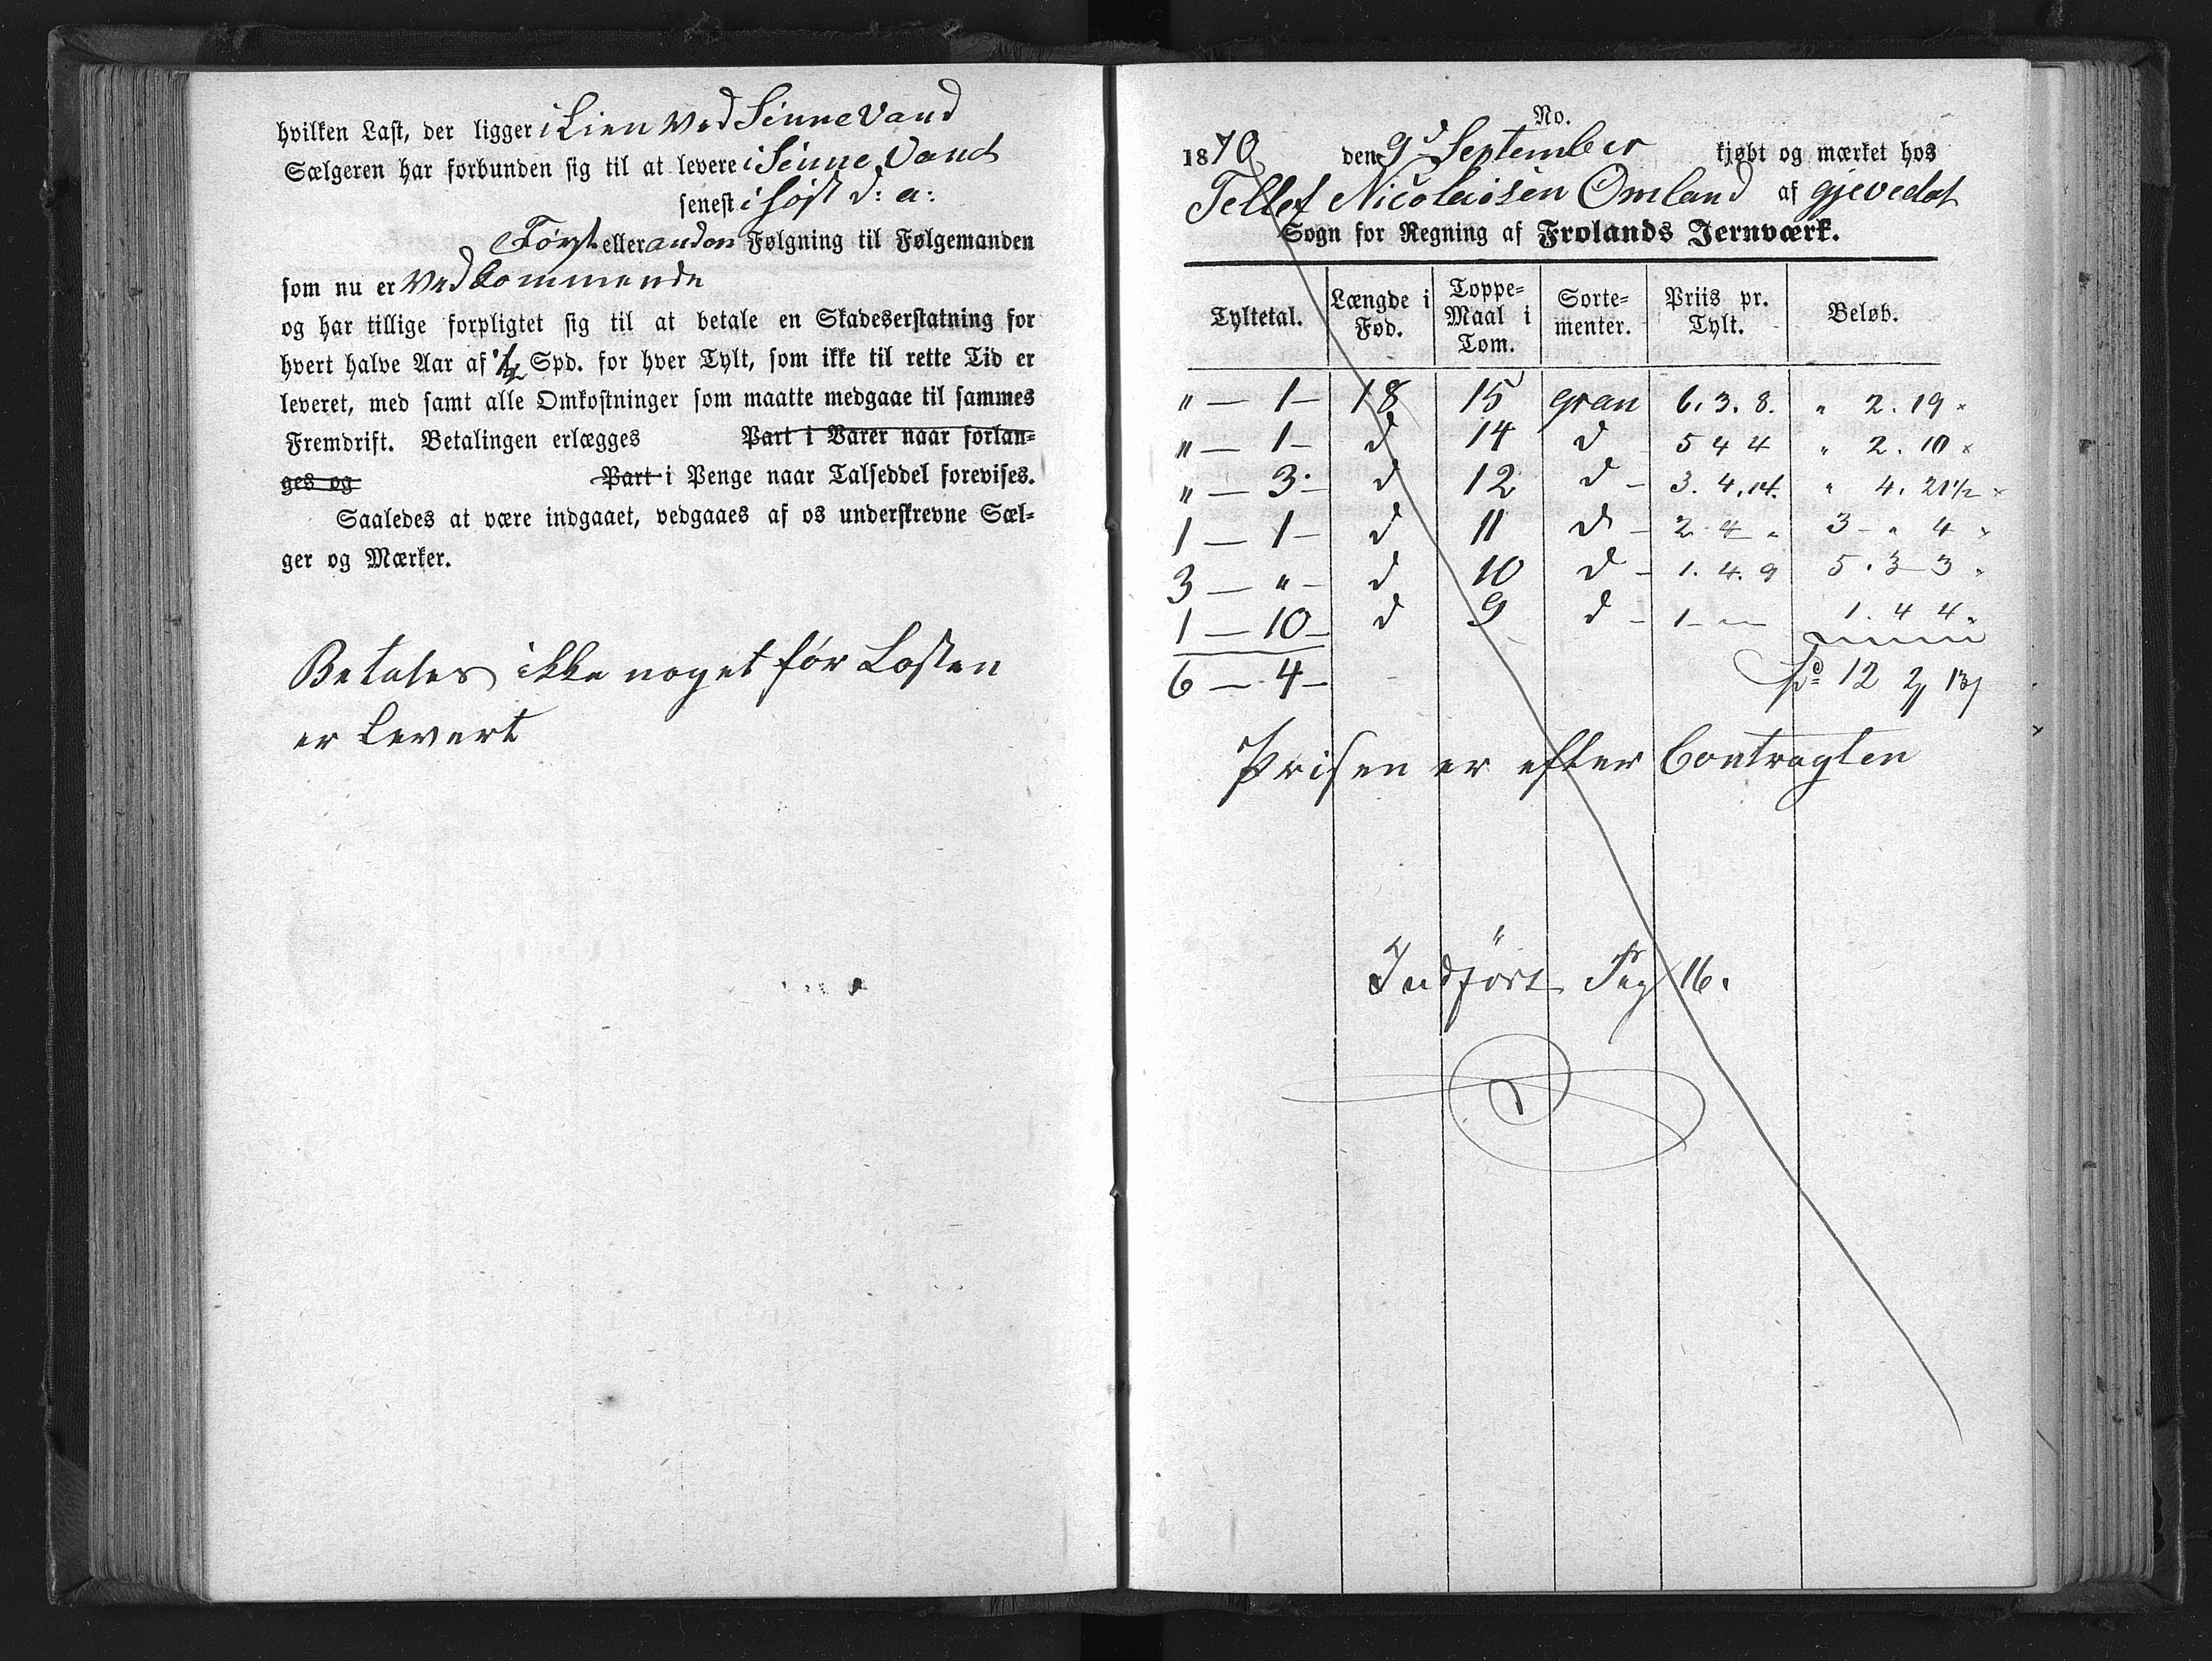 hvilken Last, der ligger i Lien ved Sinne Vand
Sælgeren har forbunden sig til at levere i Sinne Vand
senest i Høst d: a:
Først eller anden Følgning til Følgemanden
som nu er Vedkommende
og har tillige forpligtet sig til at betale en Skadeserstatning for
hvert halve Aar af 1/2 Spd. for hver Tylt, som ikke til rette Tid er
leveret, med samt alle Omkostninger som maatte medgaae til sammes
Fremdrift. Betalingen erlægges Part i Varer naar forlan-
ges og Part i Penge naar Talseddel forevises.
Saaledes at være indgaaet, vedgaaes af os underskrevne Sæl-
ger og Mærker.
Betales ikke noget før Lasten
er Levert
No.
1870 den 9d September kjøbt og mærket hos
Tellef Nicolaisen Omland af Gjevedal
Sogn for Regning af Frolands Jernværk.
Tyltetal. Længde i Fod. Toppe-Maal i Tom. Sorte-menter. Priis pr. Tylt. Beløb.
" — 1 — 18 15 gran 6. 3. 8. " 2. 19
" — 1 — d 14 d 5 4 4 " 2. 10
" — 3 — d 12 d 3. 4. 14. " 4. 21 1/2
1 — 1 — d 11 d 2 4 " 3 " 4
3 — " — d 10 d 1. 4. 9 5. 3 3
1 — 10 — d 9 d 1 — " — 1. 4 4
6 — 4 — Spd 12 2 13
Prisen er efter Contragten
Indført Pag 16.